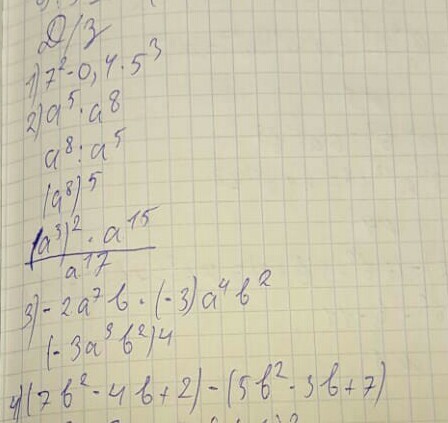 Д/З
1) 7² - 0,4 · 5³
2) a⁵ · a⁸
a⁸ : a⁵
(a⁸)⁵
(a³)² · a¹⁵
a¹⁷
3) - 2a⁷b · (-3)a⁴b²
(-3a³b²)4
4) (7b² - 4b + 2) - (5b² - 3b + 7)